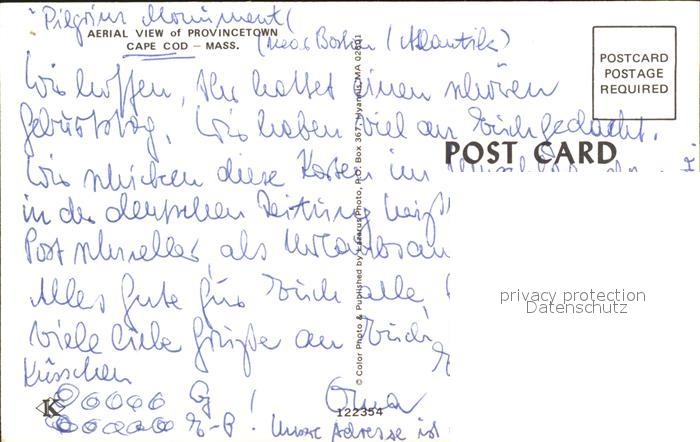 "Pilgrims Monument
AERIAL VIEW of PROVINCETOWN
CAPE COD – MASS.
(near Boston (Atlantik)
POSTCARD
POSTAGE
REQUIRED
Wir hoffen, Ihr hattet einen schönen
Geburtstag. Wir haben viel an Euch gedacht.
POST CARD
Wir schicken diese Karten im
in der deutschen Zeitung
Post schneller als
Alles Gute für Euch alle,
viele liebe Grüße an Euch,
Küsschen
Oma
Unsere Adresse ist
K
122354
© Color Photo & Published by Lazarus Photo, P.O. Box 367, Hyannis, MA 02601
privacy protection
Datenschutz